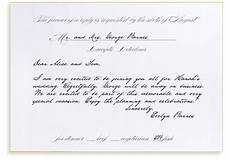 The favour of a reply is requested by the sixth of August
Mr. and Mrs. George Barnes
Dear Alice and Tom,
I am very excited to be joining you all for Sarah's
wedding. Regretfully, George will be away on business.
We are excited to be part of this memorable and very
special occasion. Enjoy the planning and celebrations.
Sincerely,
Evelyn Barnes
fish